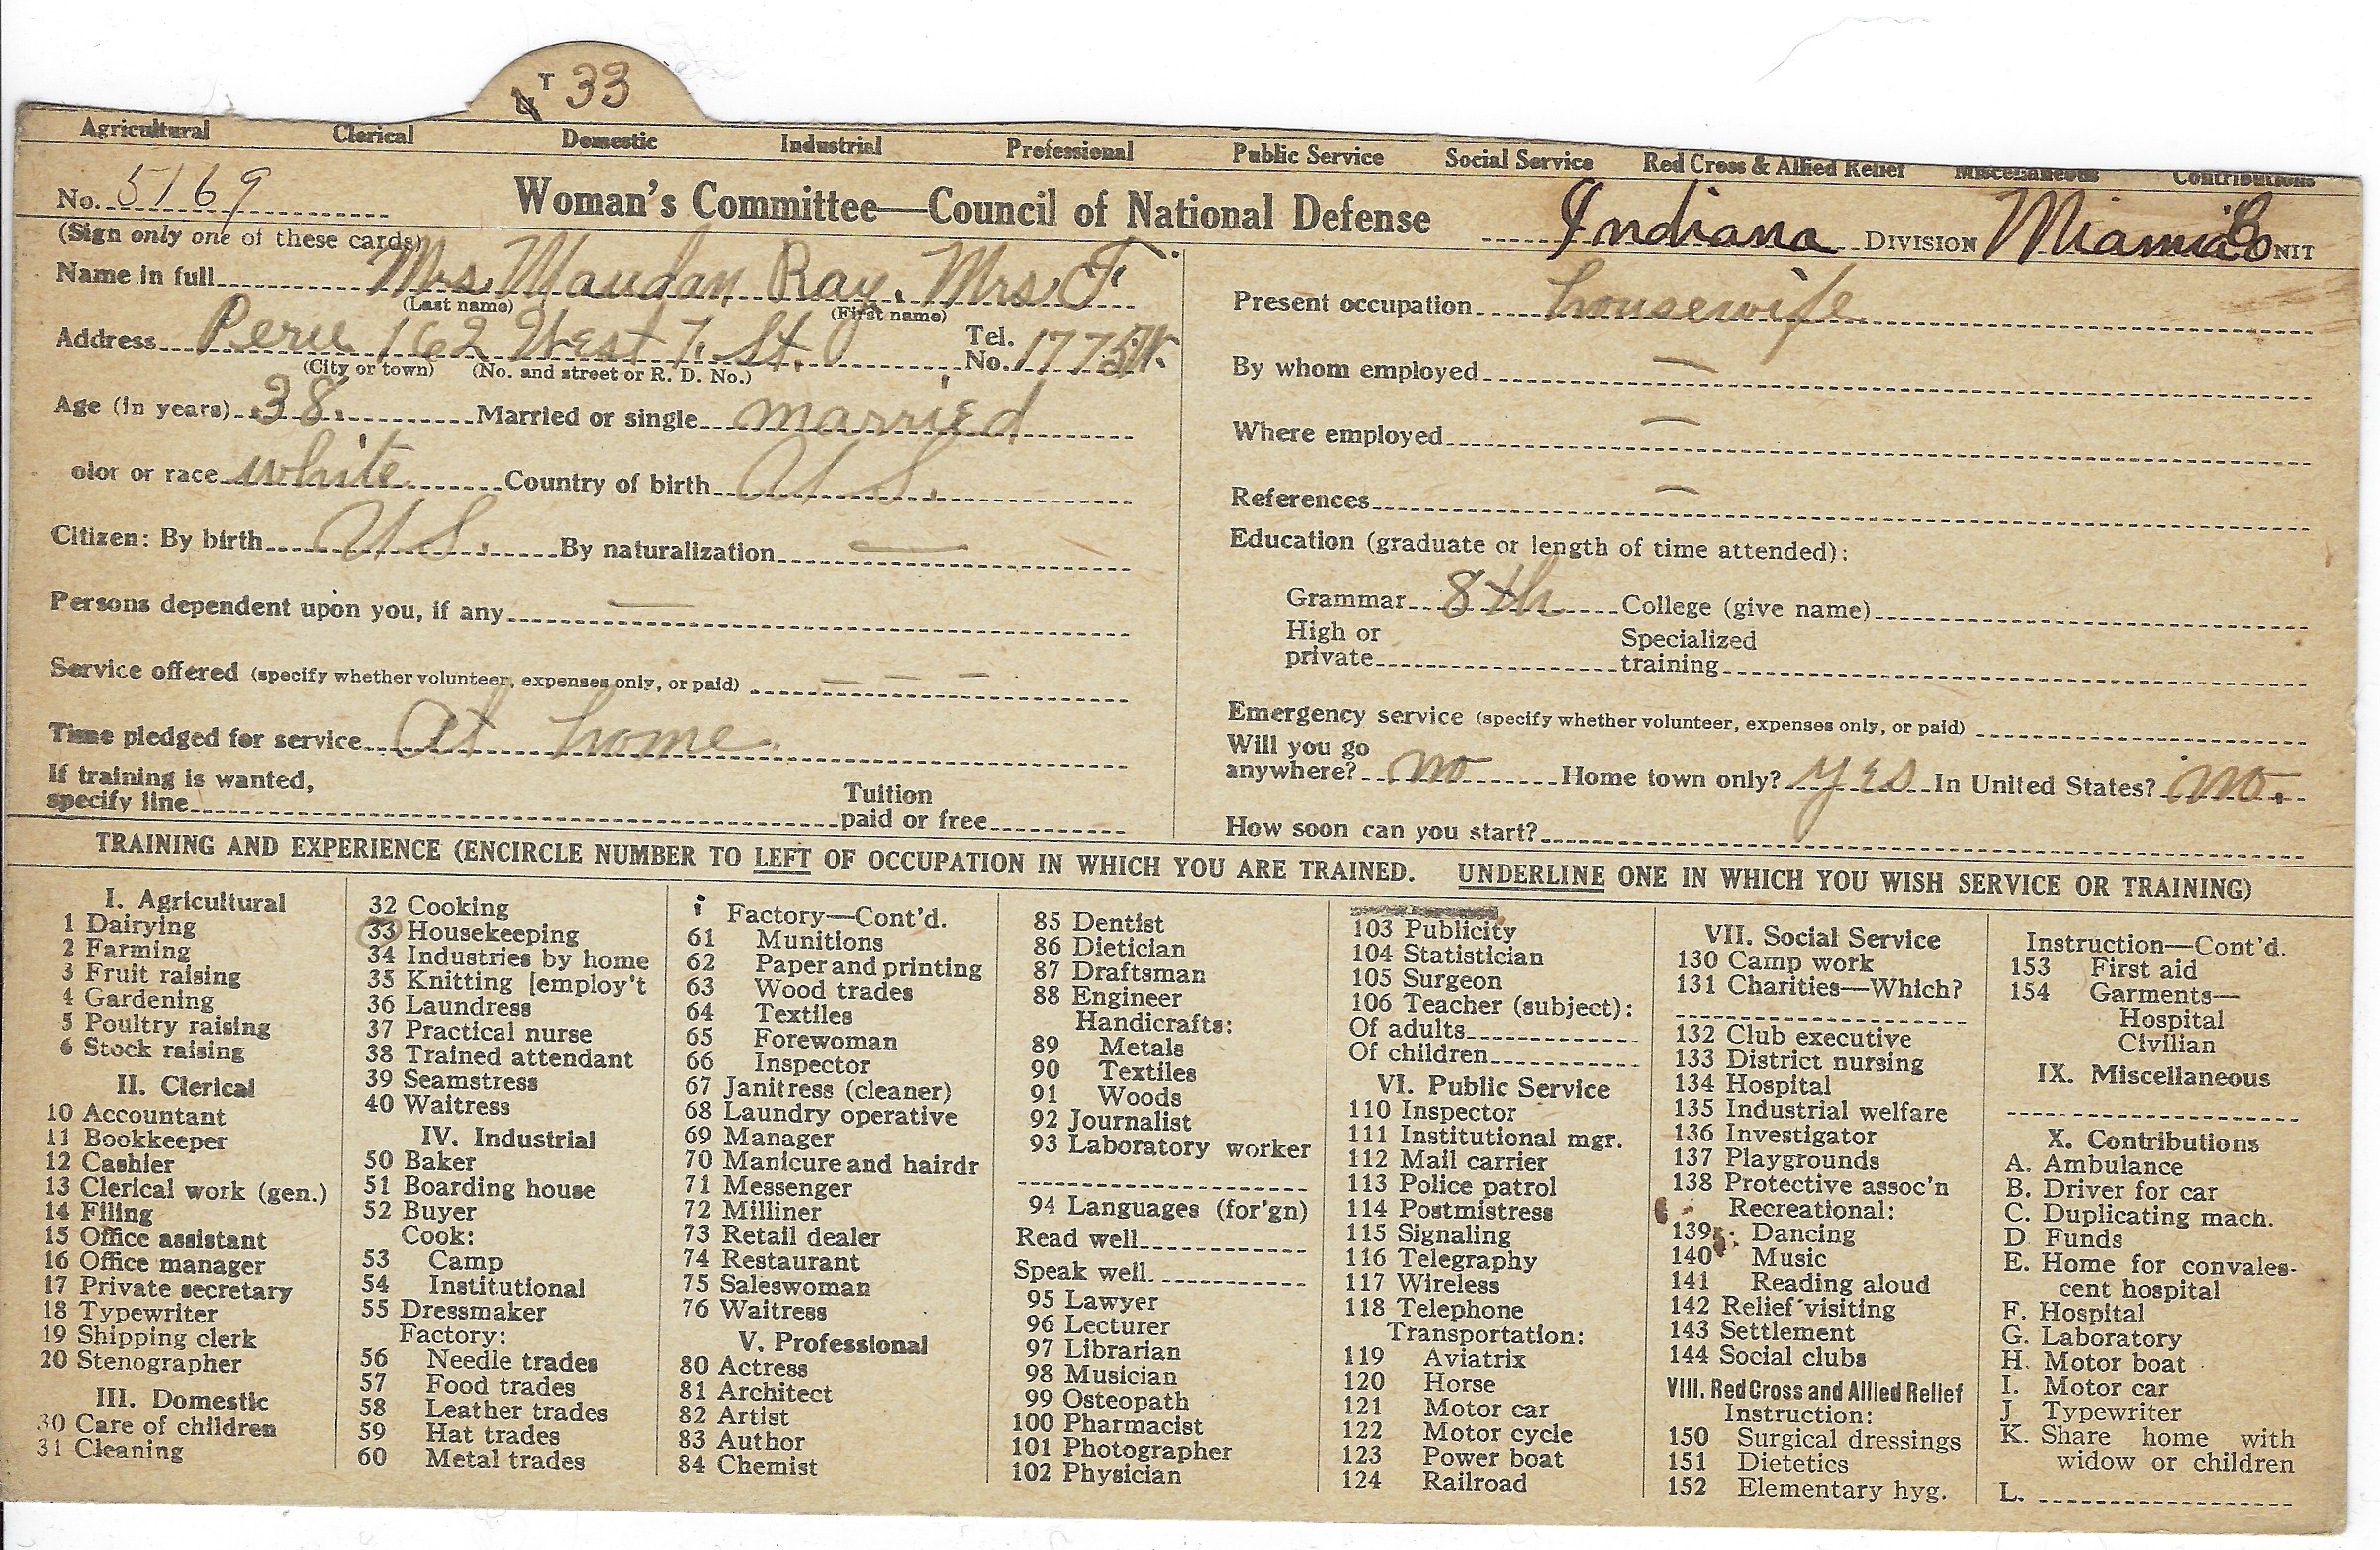 T 33
Agricultural Clerical Domestic Industrial Professional Public Service Social Service Red Cross & Allied Relief Miscellaneous Contributions
No. 5169 Woman's Committee—Council of National Defense Indiana DIVISION Miami Co UNIT
(Sign only one of these cards)
Name in full Mrs. Ray, Mrs. F.
(Last name) (First name)
Address Peru 162 West 7. St. Tel. No. 1775W.
(City or town) (No. and street or R. D. No.)
Age (in years) 38. Married or single married
olor or race white Country of birth U S.
Citizen: By birth U S. By naturalization —
Persons dependent upon you, if any —
Service offered (specify whether volunteer, expenses only, or paid) — — —
Time pledged for service At home.
If training is wanted, specify line Tuition paid or free
Present occupation housewife
By whom employed —
Where employed —
References —
Education (graduate or length of time attended):
Grammar 8th College (give name)
High or private Specialized training
Emergency service (specify whether volunteer, expenses only, or paid)
Will you go anywhere? no Home town only? yes In United States? no.
How soon can you start?
TRAINING AND EXPERIENCE (ENCIRCLE NUMBER TO LEFT OF OCCUPATION IN WHICH YOU ARE TRAINED. UNDERLINE ONE IN WHICH YOU WISH SERVICE OR TRAINING)
I. Agricultural
1 Dairying
2 Farming
3 Fruit raising
4 Gardening
5 Poultry raising
6 Stock raising
II. Clerical
10 Accountant
11 Bookkeeper
12 Cashier
13 Clerical work (gen.)
14 Filing
15 Office assistant
16 Office manager
17 Private secretary
18 Typewriter
19 Shipping clerk
20 Stenographer
III. Domestic
30 Care of children
31 Cleaning
32 Cooking
33 Housekeeping
34 Industries by home
35 Knitting [employ't
36 Laundress
37 Practical nurse
38 Trained attendant
39 Seamstress
40 Waitress
IV. Industrial
50 Baker
51 Boarding house
52 Buyer
Cook:
53 Camp
54 Institutional
55 Dressmaker
Factory:
56 Needle trades
57 Food trades
58 Leather trades
59 Hat trades
60 Metal trades
Factory—Cont'd.
61 Munitions
62 Paper and printing
63 Wood trades
64 Textiles
65 Forewoman
66 Inspector
67 Janitress (cleaner)
68 Laundry operative
69 Manager
70 Manicure and hairdr
71 Messenger
72 Milliner
73 Retail dealer
74 Restaurant
75 Saleswoman
76 Waitress
V. Professional
80 Actress
81 Architect
82 Artist
83 Author
84 Chemist
85 Dentist
86 Dietician
87 Draftsman
88 Engineer
Handicrafts:
89 Metals
90 Textiles
91 Woods
92 Journalist
93 Laboratory worker
94 Languages (for'gn)
Read well
Speak well
95 Lawyer
96 Lecturer
97 Librarian
98 Musician
99 Osteopath
100 Pharmacist
101 Photographer
102 Physician
103 Publicity
104 Statistician
105 Surgeon
106 Teacher (subject):
Of adults
Of children
VI. Public Service
110 Inspector
111 Institutional mgr.
112 Mail carrier
113 Police patrol
114 Postmistress
115 Signaling
116 Telegraphy
117 Wireless
118 Telephone
Transportation:
119 Aviatrix
120 Horse
121 Motor car
122 Motor cycle
123 Power boat
124 Railroad
VII. Social Service
130 Camp work
131 Charities—Which?
132 Club executive
133 District nursing
134 Hospital
135 Industrial welfare
136 Investigator
137 Playgrounds
138 Protective assoc'n
Recreational:
139 Dancing
140 Music
141 Reading aloud
142 Relief visiting
143 Settlement
144 Social clubs
VIII. Red Cross and Allied Relief
Instruction:
150 Surgical dressings
151 Dietetics
152 Elementary hyg.
Instruction—Cont'd.
153 First aid
154 Garments—
Hospital
Civilian
IX. Miscellaneous
X. Contributions
A. Ambulance
B. Driver for car
C. Duplicating mach.
D Funds
E. Home for convales-
cent hospital
F. Hospital
G. Laboratory
H. Motor boat
I. Motor car
J Typewriter
K. Share home with
widow or children
L.